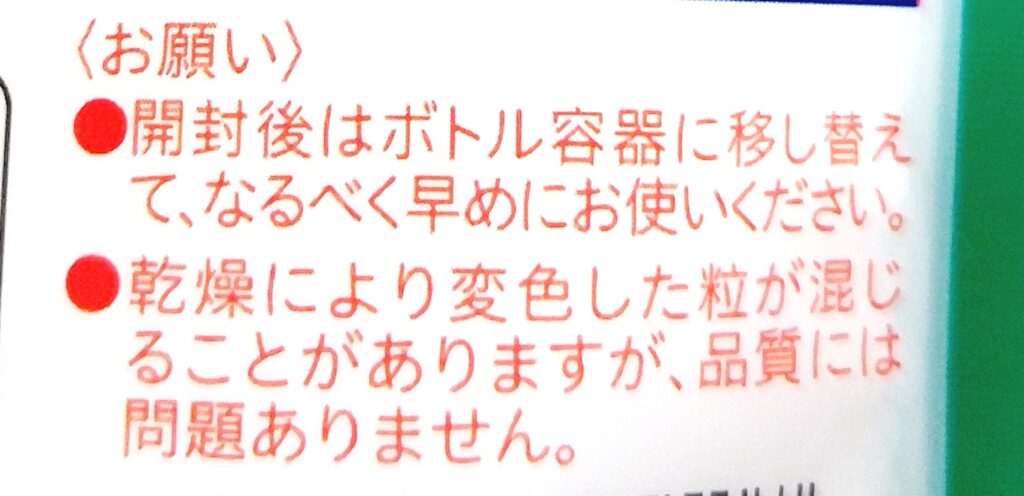 〈お願い〉
●開封後はボトル容器に移し替え
て、なるべく早めにお使いください。
●乾燥により変色した粒が混じ
ることがありますが、品質には
問題ありません。